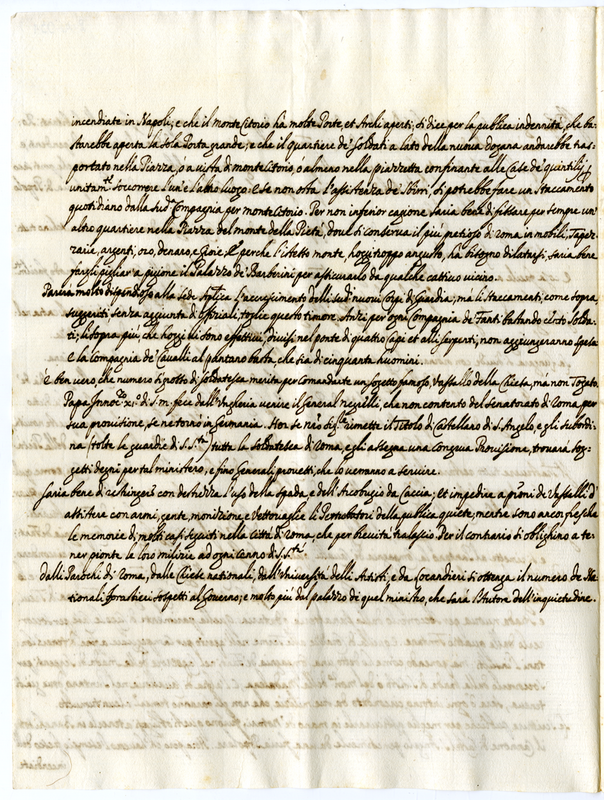 incendiate in Napoli, e che il monte Citorio hà molte Porte, et Archi aperti, si dice per la publica indennità, che ba-
starebbe aperta la sola Porta grande; e che il quartiere de' Soldati a lato della nuova dogana andarebbe tras-
portato nella Piazza, ò a vista di monte Citorio, ò almeno nella piazzetta confinante alle Case de' quintilij
unitam.te soccorrere l'un'e l'altro luogo: e se non osta l'assistenza de' Sbirri, si potrebbe fare un staccamento
quotidiano dalla sud.a Compagnia per monte Citorio. Per non inferior cagione, saria bene di fissare per sempre un'
altro quartiere nella Piazza del monte della Pietà, dove si conserva il più pretioso di Roma in mobili, Tapez-
zarie, argenti, oro, denaro, e Gioie, e perche l'istesso monte, hoggi troppo angusto, hà bisogno dilatarsi, saria bene
fargli pigliar a pigione il Palazzo de' Barberini per assicurarlo da qualche cattivo vicino.
Pareria molto dispendioso alla Sede Aplica l'accrescimento delli sud.i nuovi Corpi di Guardia; mà li staccamenti, come sopra,
suggeriti senza aggiunta di offiziali, toglie questo timore. Anzi per ogni Compagnia de' Fanti bastando cento Solda-
ti, li sopra più, che hoggi vi sono effettivi, divisi nel ponte di quattro Capi et altri sergenti, non aggiungeranno spesa
e la compagnia de' Cavalli al quantano basta, che sia di cinquanta huomini.
È ben vero, che numero si grosso di soldatesca merita per Comandante un soggetto famoso, Vassallo della Chiesa, mà non Togato.
Papa Innoc.o xi.o di S. m. fece dell'Ungheria venire il General negrelli, che non contento del Senatorato di Roma, per
sua provisione, se ne tornò in Germania. Hor se n'ro Sig.re rimette il Titolo di Castellano di S. Angelo, e gli subordi-
na (tolte le guardie di S. S.tà) tutta la soldatesca di Roma, e gli assegna una congrua Provisione, trovarà sog-
getti degni per tal ministero, e fino Generali provetti, che lo veranno a servire.
Saria bene di restringere con destrezza l'uso della spada, e dell'Arcobugio da Caccia; et impedire a p'roni de' Vassalli d'
assistere con armi, gente, monizione, e Vettovaglie li Perturbatori della publica quiete; mentre sono ancor fresche
le memorie di molti casi seguiti nella Città di Roma, che per brevità tralascio. Per il contrario si oblighino a te-
ner pronte le loro milizie ad ogni cenno di S. S.tà
Dalli Parochi di Roma, dalle Chiese nationali, dall'Università delli Artisti, e da Locandieri si ottenga il numero de Na-
tionali forastieri sospetti al Governo; e molto più dal palazzo di quel ministro, che sarà l'Autore dell'inquietudine.